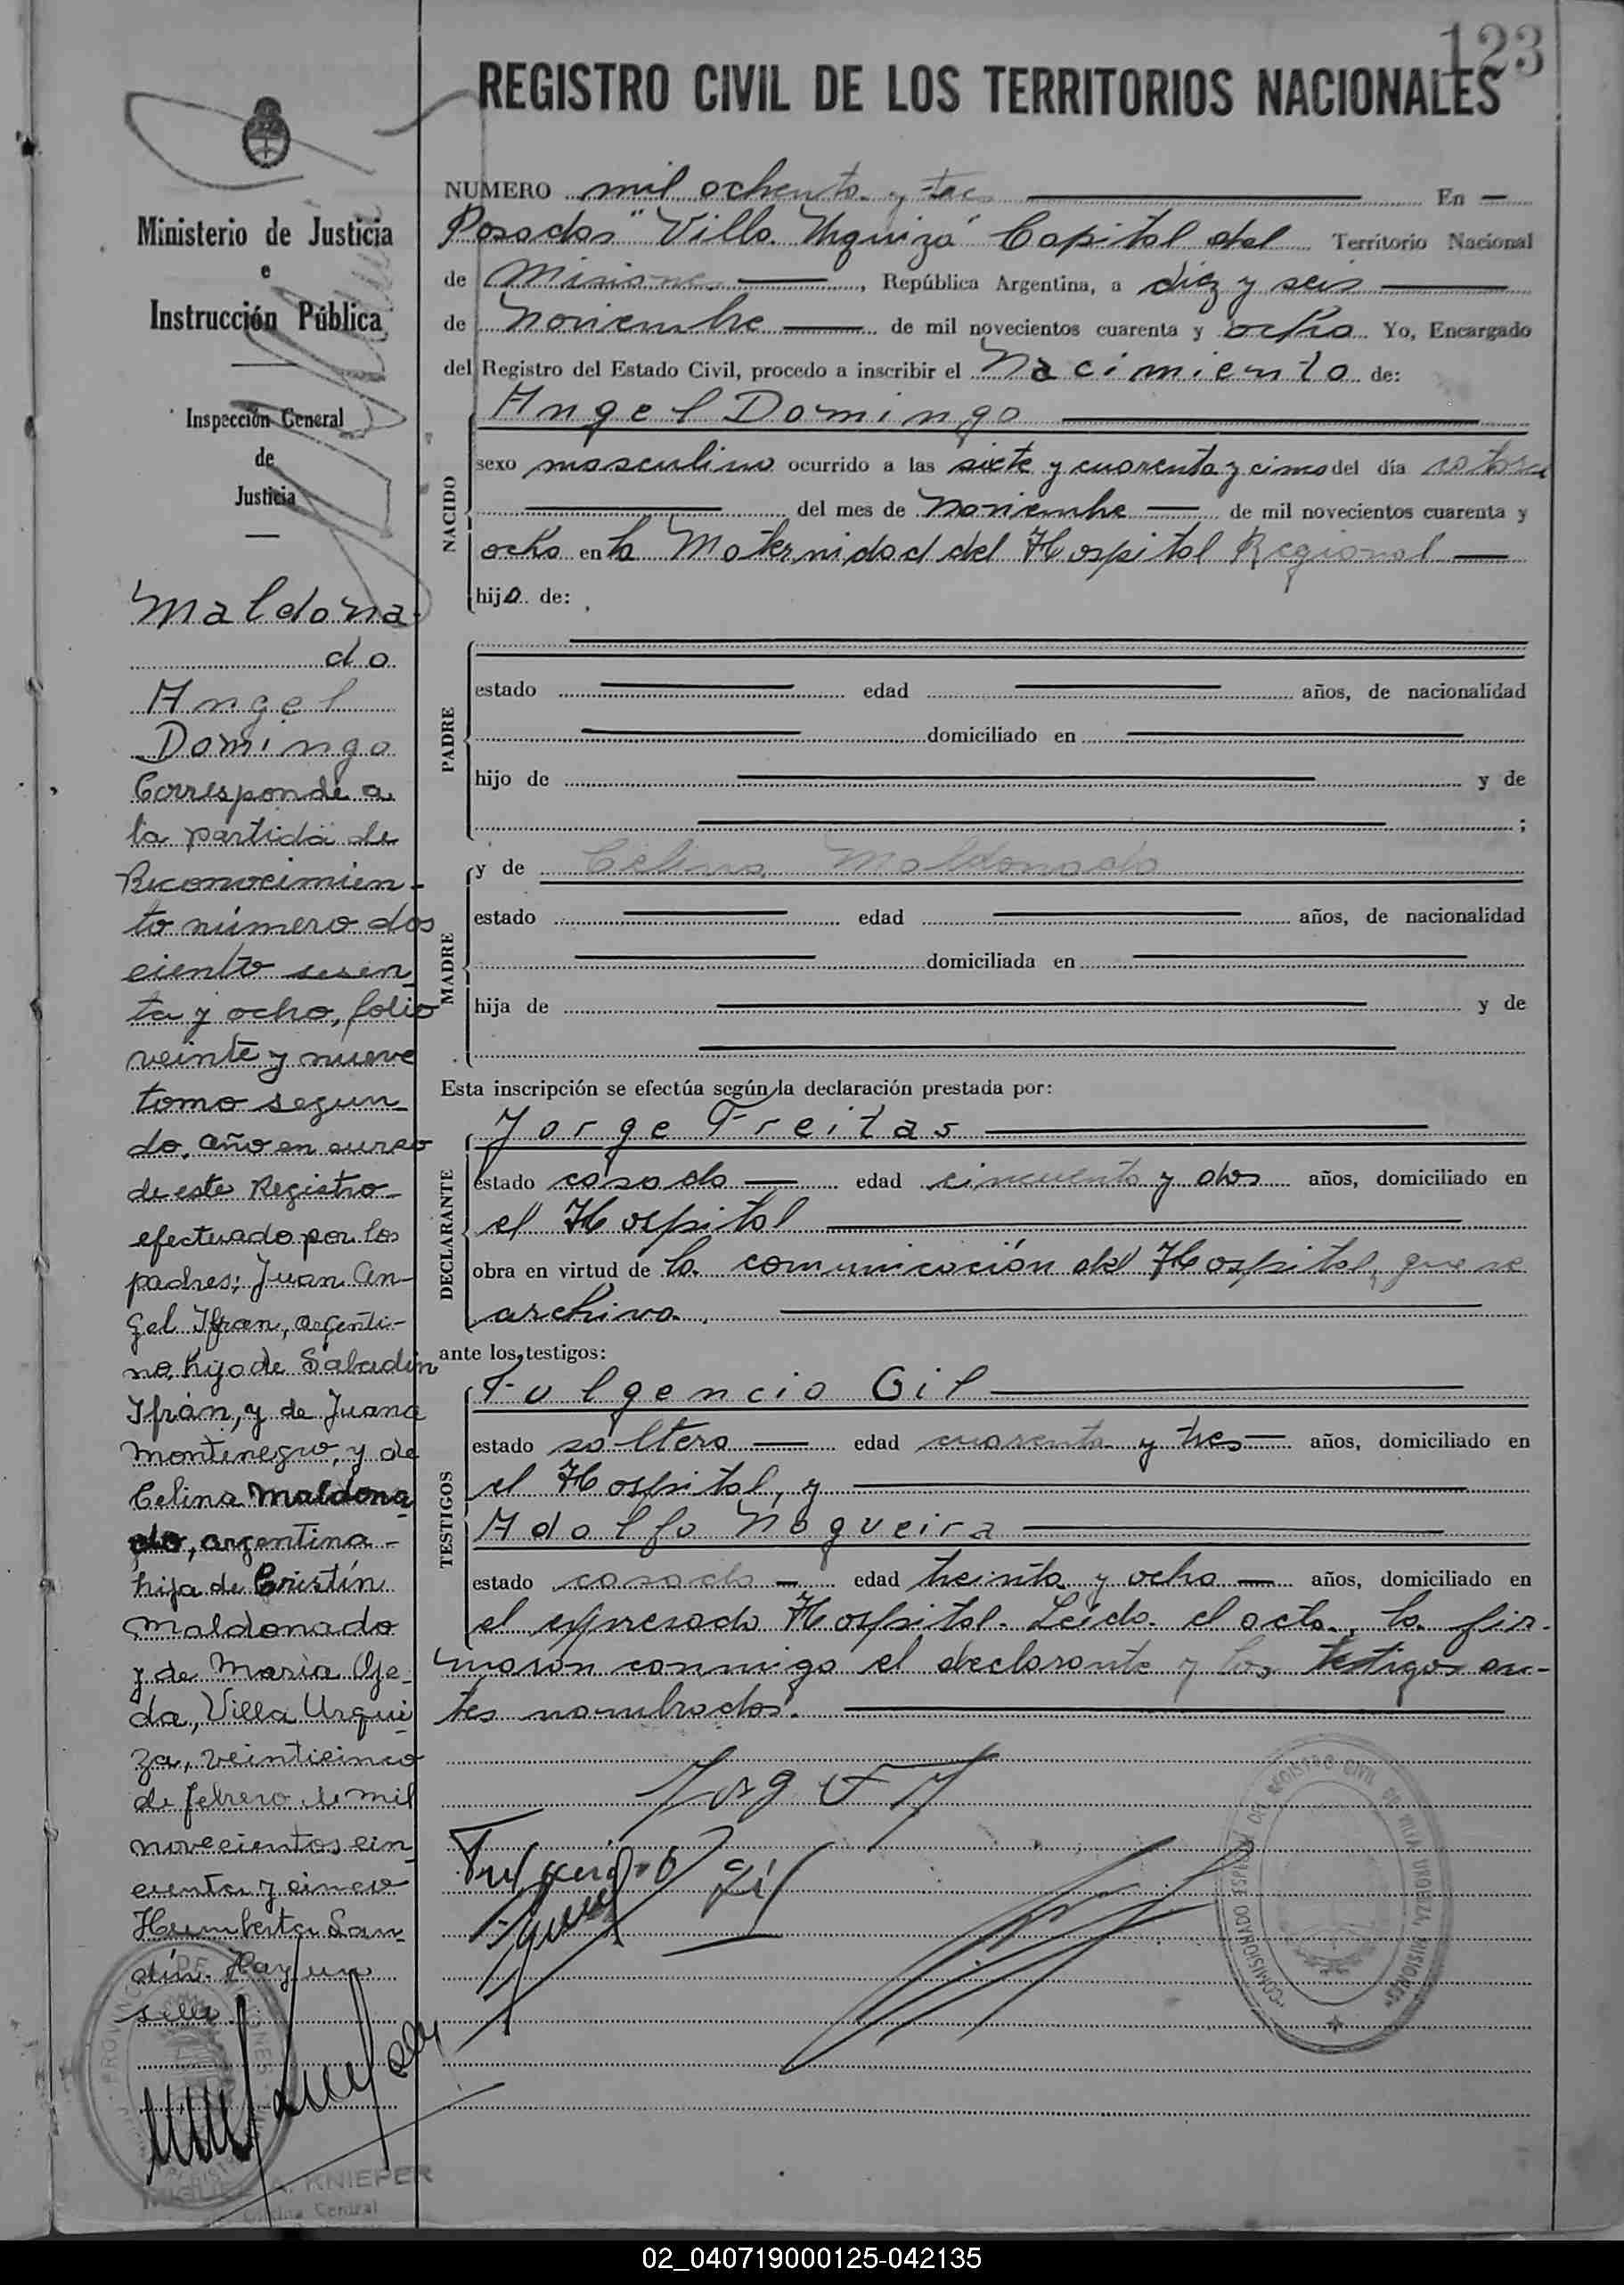 123
REGISTRO CIVIL DE LOS TERRITORIOS NACIONALES
Ministerio de Justicia
e
Instrucción Pública
Inspección General
de
Justicia
Maldona-
do
Angel
Domingo
Corresponde a
la partida de
Reconocimien-
to número dos
ciento sesen-
ta y ocho, folio
veinte y nueve
tomo segun-
do, año en curso
de este Registro
efectuado por los
padres; Juan An-
gel Ifran, argenti-
no, hijo de Sabadin
Ifrán, y de Juana
Montenegro, y de
Celina Maldona
do, argentina -
hija de Cristín
Maldonado
y de María Oje-
da, Villa Urqui
za, veinticinco
de febrero de mil
novecientos cin
cuenta y cinco
Humberto San-
din. Hay un
sello.
MIGUEL A. KNIEPER
Oficina Central
NUMERO mil ochenta y tres En
Posadas "Villa Urquiza" Capital del Territorio Nacional
de Misiones, República Argentina, a diez y seis
de Noviembre de mil novecientos cuarenta y ocho Yo, Encargado
del Registro del Estado Civil, procedo a inscribir el Nacimiento de:
NACIDO
Angel Domingo
sexo masculino ocurrido a las siete y cuarenta y cinco del día catorce
del mes de Noviembre de mil novecientos cuarenta y
ocho en la Maternidad del Hospital Regional
hijo de:
PADRE
estado edad años, de nacionalidad
domiciliado en
hijo de y de
;
MADRE
y de Celina Maldonado
estado edad años, de nacionalidad
domiciliada en
hija de y de
Esta inscripción se efectúa según la declaración prestada por:
DECLARANTE
Jorge Freitas
estado casado edad cincuenta y dos años, domiciliado en
el Hospital
obra en virtud de la comunicación del Hospital, que se
archiva.
ante los testigos:
TESTIGOS
Fulgencio Gil
estado soltero edad cuarenta y tres años, domiciliado en
el Hospital, y
Adolfo Nogueira
estado casado edad treinta y ocho años, domiciliado en
el expresado Hospital. Leída el acta, la fir-
maron conmigo el declarante y los testigos an-
tes nombrados.
Fulgencio Gil
COMISARIADO ESPECIAL DEL REGISTRO CIVIL DE VILLA URQUIZA MISIONES
02_040719000125-042135